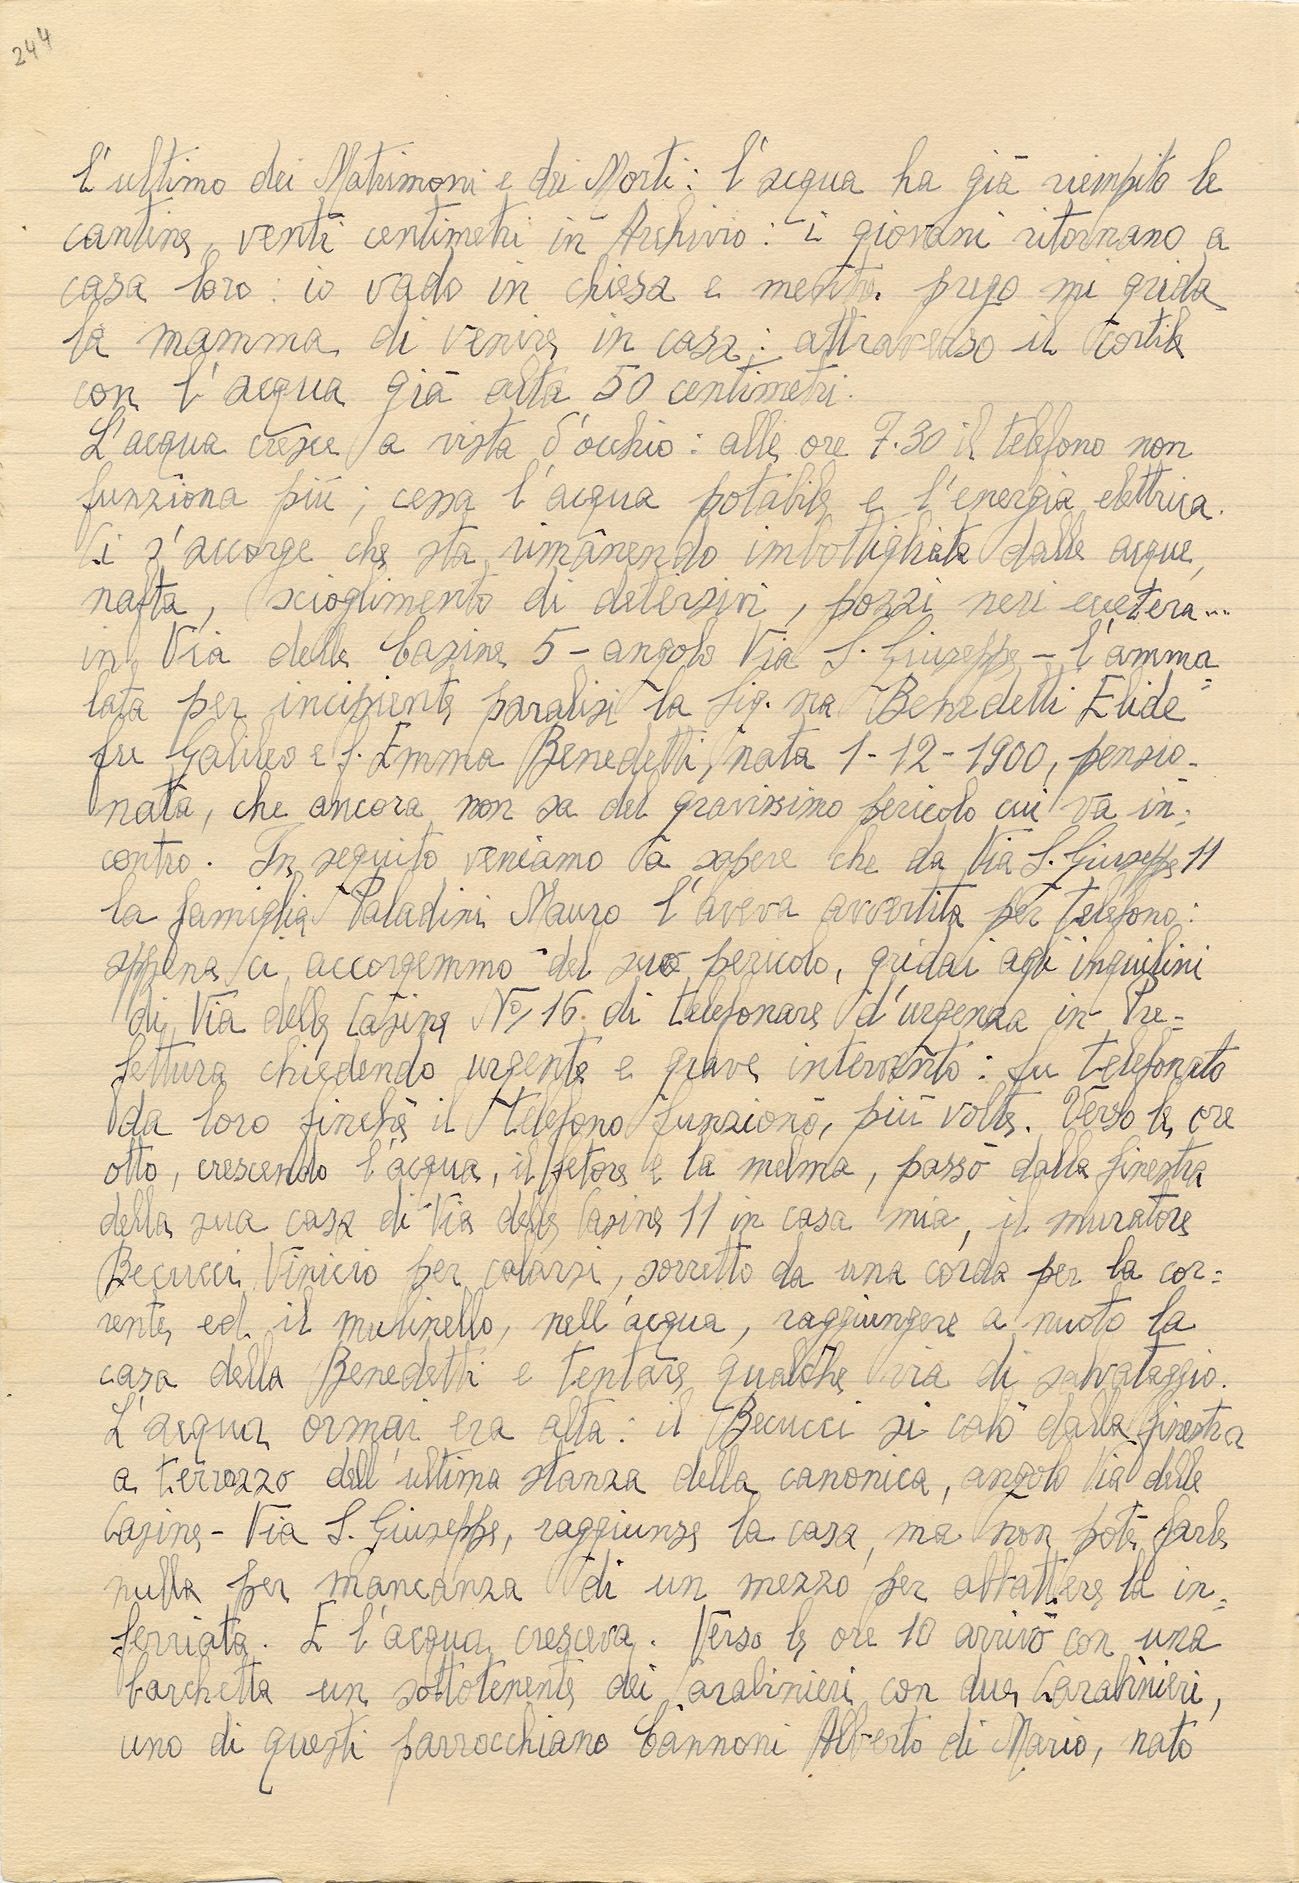 244
l'ultimo dei Matrimoni e dei Morti: l'acqua ha già riempito le
cantine, venti centimetri in Archivio: i giovani ritornano a
casa loro: io vado in chiesa e mentre prego mi grida
la mamma di venire in casa: attraverso il cortile
con l'acqua già alta 50 centimetri.
L'acqua cresce a vista d'occhio: alle ore 7.30 il telefono non
funziona più; cessa l'acqua potabile e l'energia elettrica.
Ci s'accorge che sta rimanendo imbottigliata dalle acque,
nafta, scioglimento di detersivi, pozzi neri eccetera...
in Via delle Casine 5 - angolo Via S. Giuseppe - l'amma=
lata per incipiente paralisi la sig.na Benedetti Elide
fu Galileo e f. Emma Benedetti, nata 1-12-1900, pensio-
nata, che ancora non sa del gravissimo pericolo cui va in=
contro. In seguito veniamo a sapere che da Via S. Giuseppe 11
la famiglia Paladini Mauro l'aveva avvertita per telefono:
appena ci accorgemmo del suo pericolo, gridai agli inquilini
di Via delle Casine No, 16 di telefonare d'urgenza in Pre=
fettura chiedendo urgente e grave intervento: fu telefonato
da loro finchè il telefono funzionò, più volte. Verso le ore
otto, crescendo l'acqua, il fetore e la melma, passò dalla finestra
della sua casa di Via delle Casine 11 in casa mia, il muratore
Becucci Vinicio per calarsi, sorretto da una corda per la cor=
rente ed il mulinello, nell'acqua, raggiungere a nuoto la
casa della Benedetti e tentare qualche via di salvataggio.
L'acqua ormai era alta: il Becucci si calò dalla finestra
a terrazzo dell'ultima stanza della canonica, angolo Via delle
Casine - Via S. Giuseppe, raggiunse la casa, ma non potè farle
nulla per mancanza di un mezzo per abbattere la in=
ferriata. E l'acqua cresceva. Verso le ore 10 arrivò con una
barchetta un sottotenente dei Carabinieri con due Carabinieri,
uno di questi parrocchiano Cannoni Alberto di Mario, nato